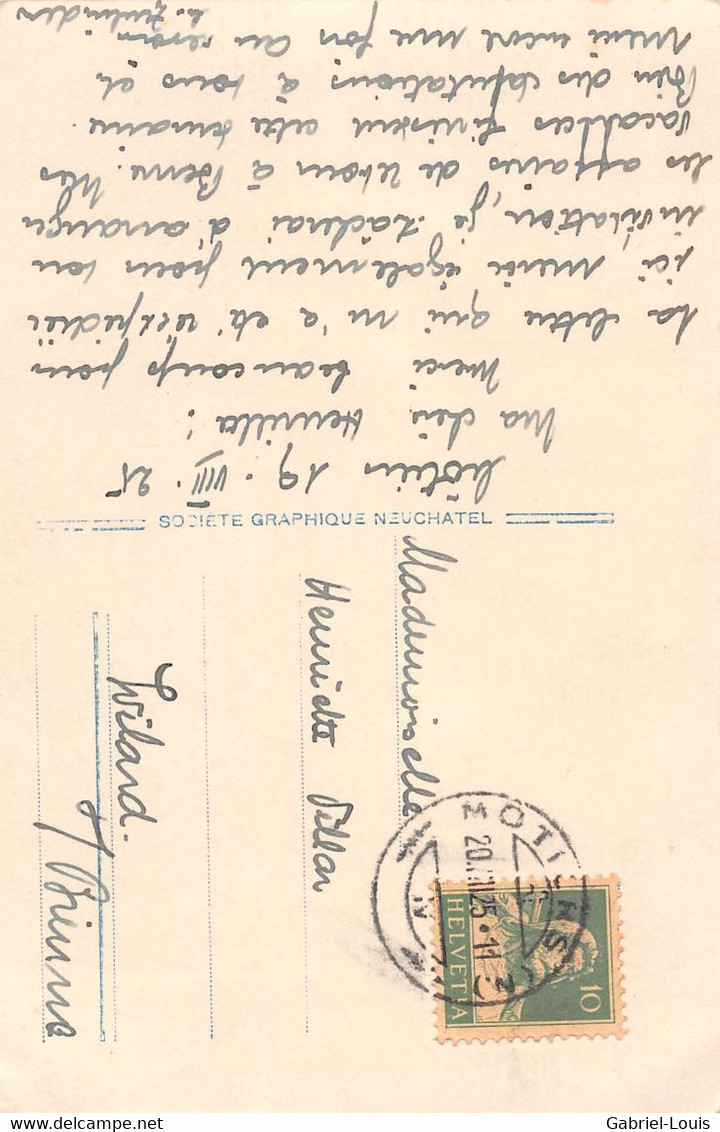 Môtiers 19. VIII. 25
Ma chère Henriette!
Merci beaucoup pour
La lettre qui m'a été expédiée
ici, merci également pour ton
invitation, je tâcherai d'arranger
les affaires de retour à Berne. Mes
vacances finissent cette semaine.
Bien des salutations à tous et
merci encore une fois au revoir
SOCIÉTÉ GRAPHIQUE NEUCHATEL
Mademoiselle
Henriette Villar
Wiland.
s/ Bienne
MOTIERS (N.)
20.VIII.25.11
HELVETIA
10
Gabriel-Louis